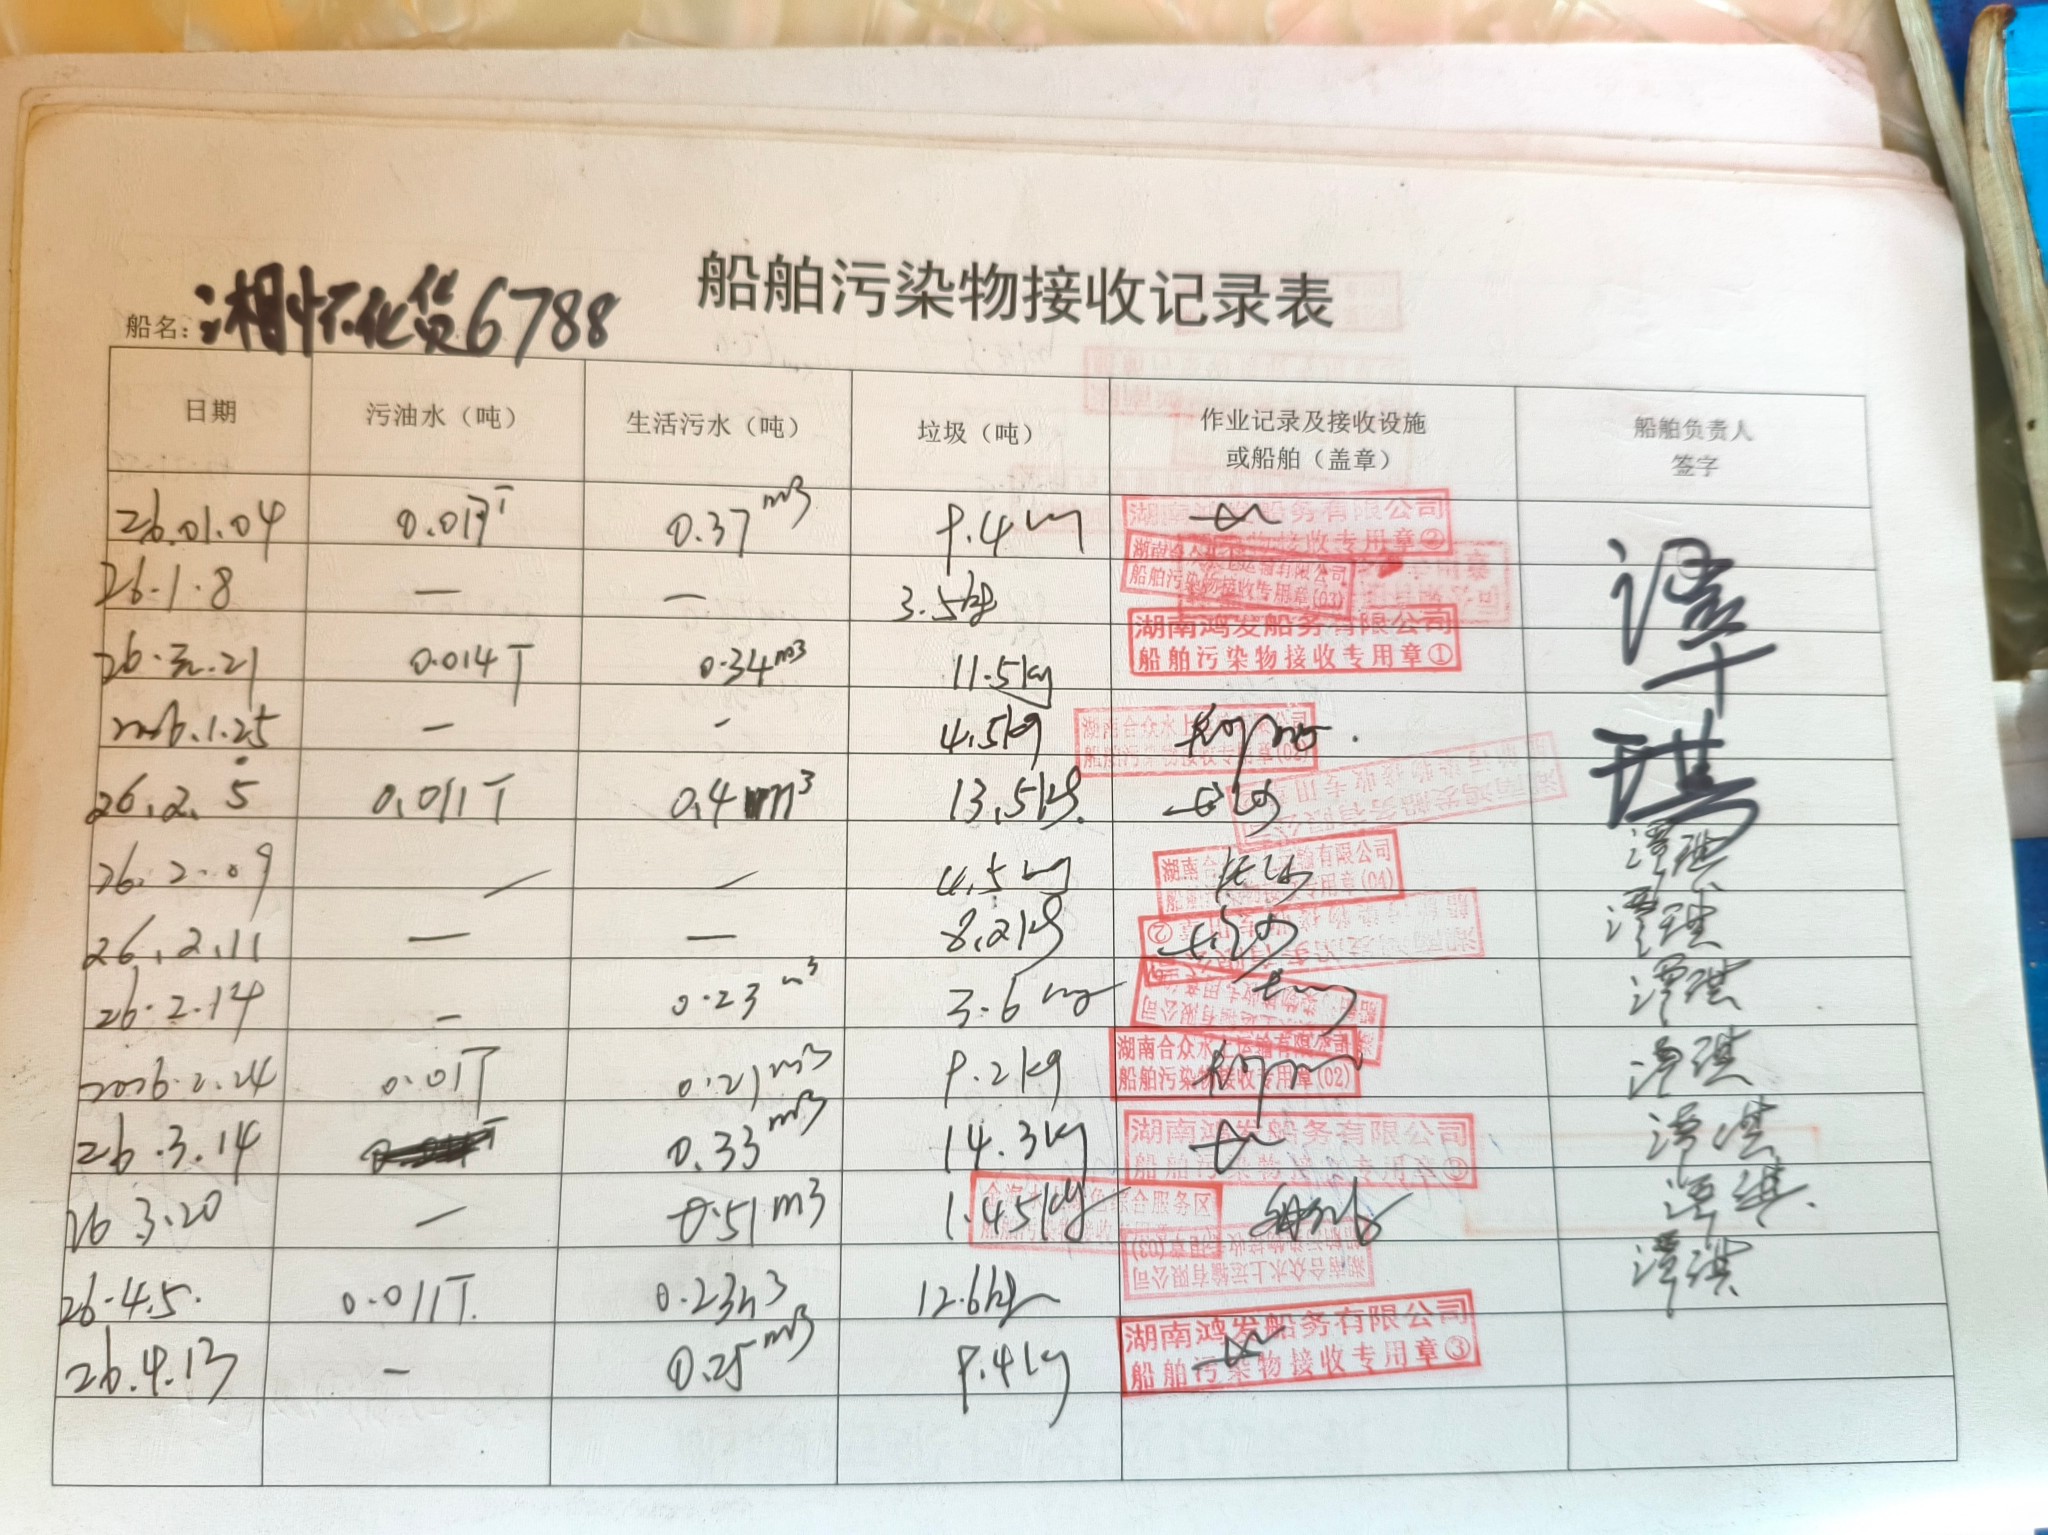 船舶污染物接收记录表
船名：湘怀化货6788
日期 污油水（吨） 生活污水（吨） 垃圾（吨） 作业记录及接收设施或船舶（盖章） 船舶负责人签字
26.01.04 0.37 m3 9.4 kg
湖南鸿发船务有限公司
船舶污染物接收专用章②
26.1.8 — — 3.5kg
船舶污染物接收专用章(03)
26.元.21 0.014T 0.34m3 11.5kg
湖南鸿发船务有限公司
船舶污染物接收专用章①
谭琪
2026.1.25 — - 4.5kg
湖南合众水上运输有限公司
船舶污染物接收专用章(02)
26.2.5 0.011T 0.4m3 13.5kg.
26.2.09 — — 4.5kg 谭琪
湖南合众水上运输有限公司
船舶污染物接收专用章(04)
26.2.11 — — 8.2kg 谭琪
26.2.14 - 0.23m3 3.6kg 谭琪
2026.2.24 0.01T 0.21m3 9.2kg 谭琪
湖南合众水上运输有限公司
船舶污染物接收专用章(02)
26.3.14 0.33m3 14.3kg 谭琪
湖南鸿发船务有限公司
船舶污染物接收专用章②
26 3.20 — 0.51m3 1.45kg 谭琪.
综合服务区
湖南合众水上运输有限公司
船舶污染物接收专用章(03)
26.4.5. 0.011T. 0.23m3 12.6kg 谭琪
26.4.13 - 0.25m3 9.4kg
湖南鸿发船务有限公司
船舶污染物接收专用章③